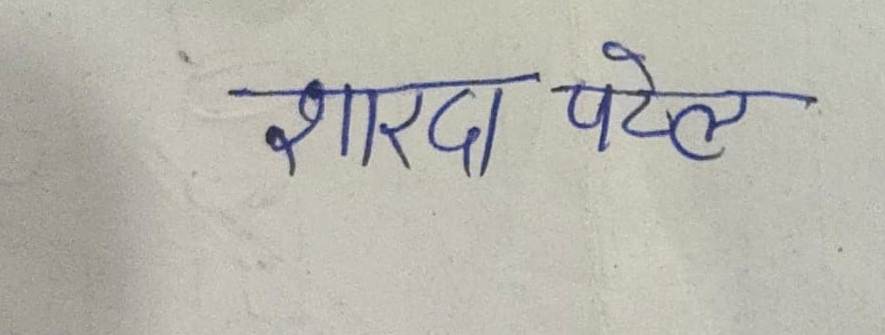 शारदा पटेल